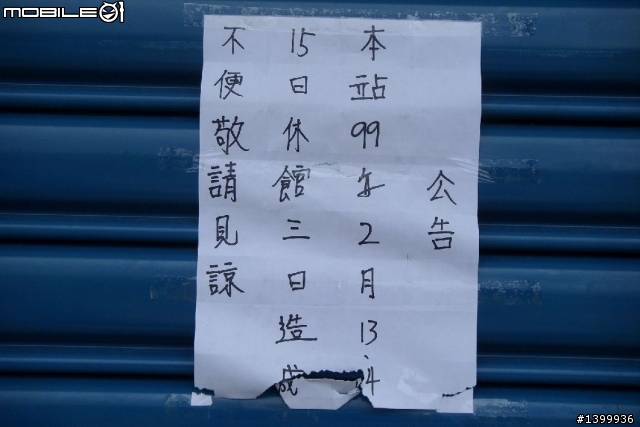 公告
本站99年2月13、14
15日休館三日造成
不便敬請見諒
MOBILE01
#1399936